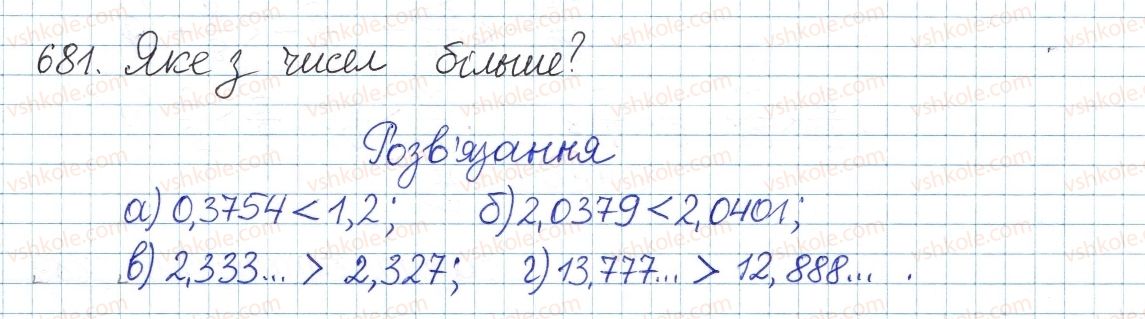 681. Яке з чисел більше?
Розв'язання
а) 0,3754 < 1,2; б) 2,0379 < 2,0401;
в) 2,333... > 2,327; г) 13,777... > 12,888... .
vshkole.com